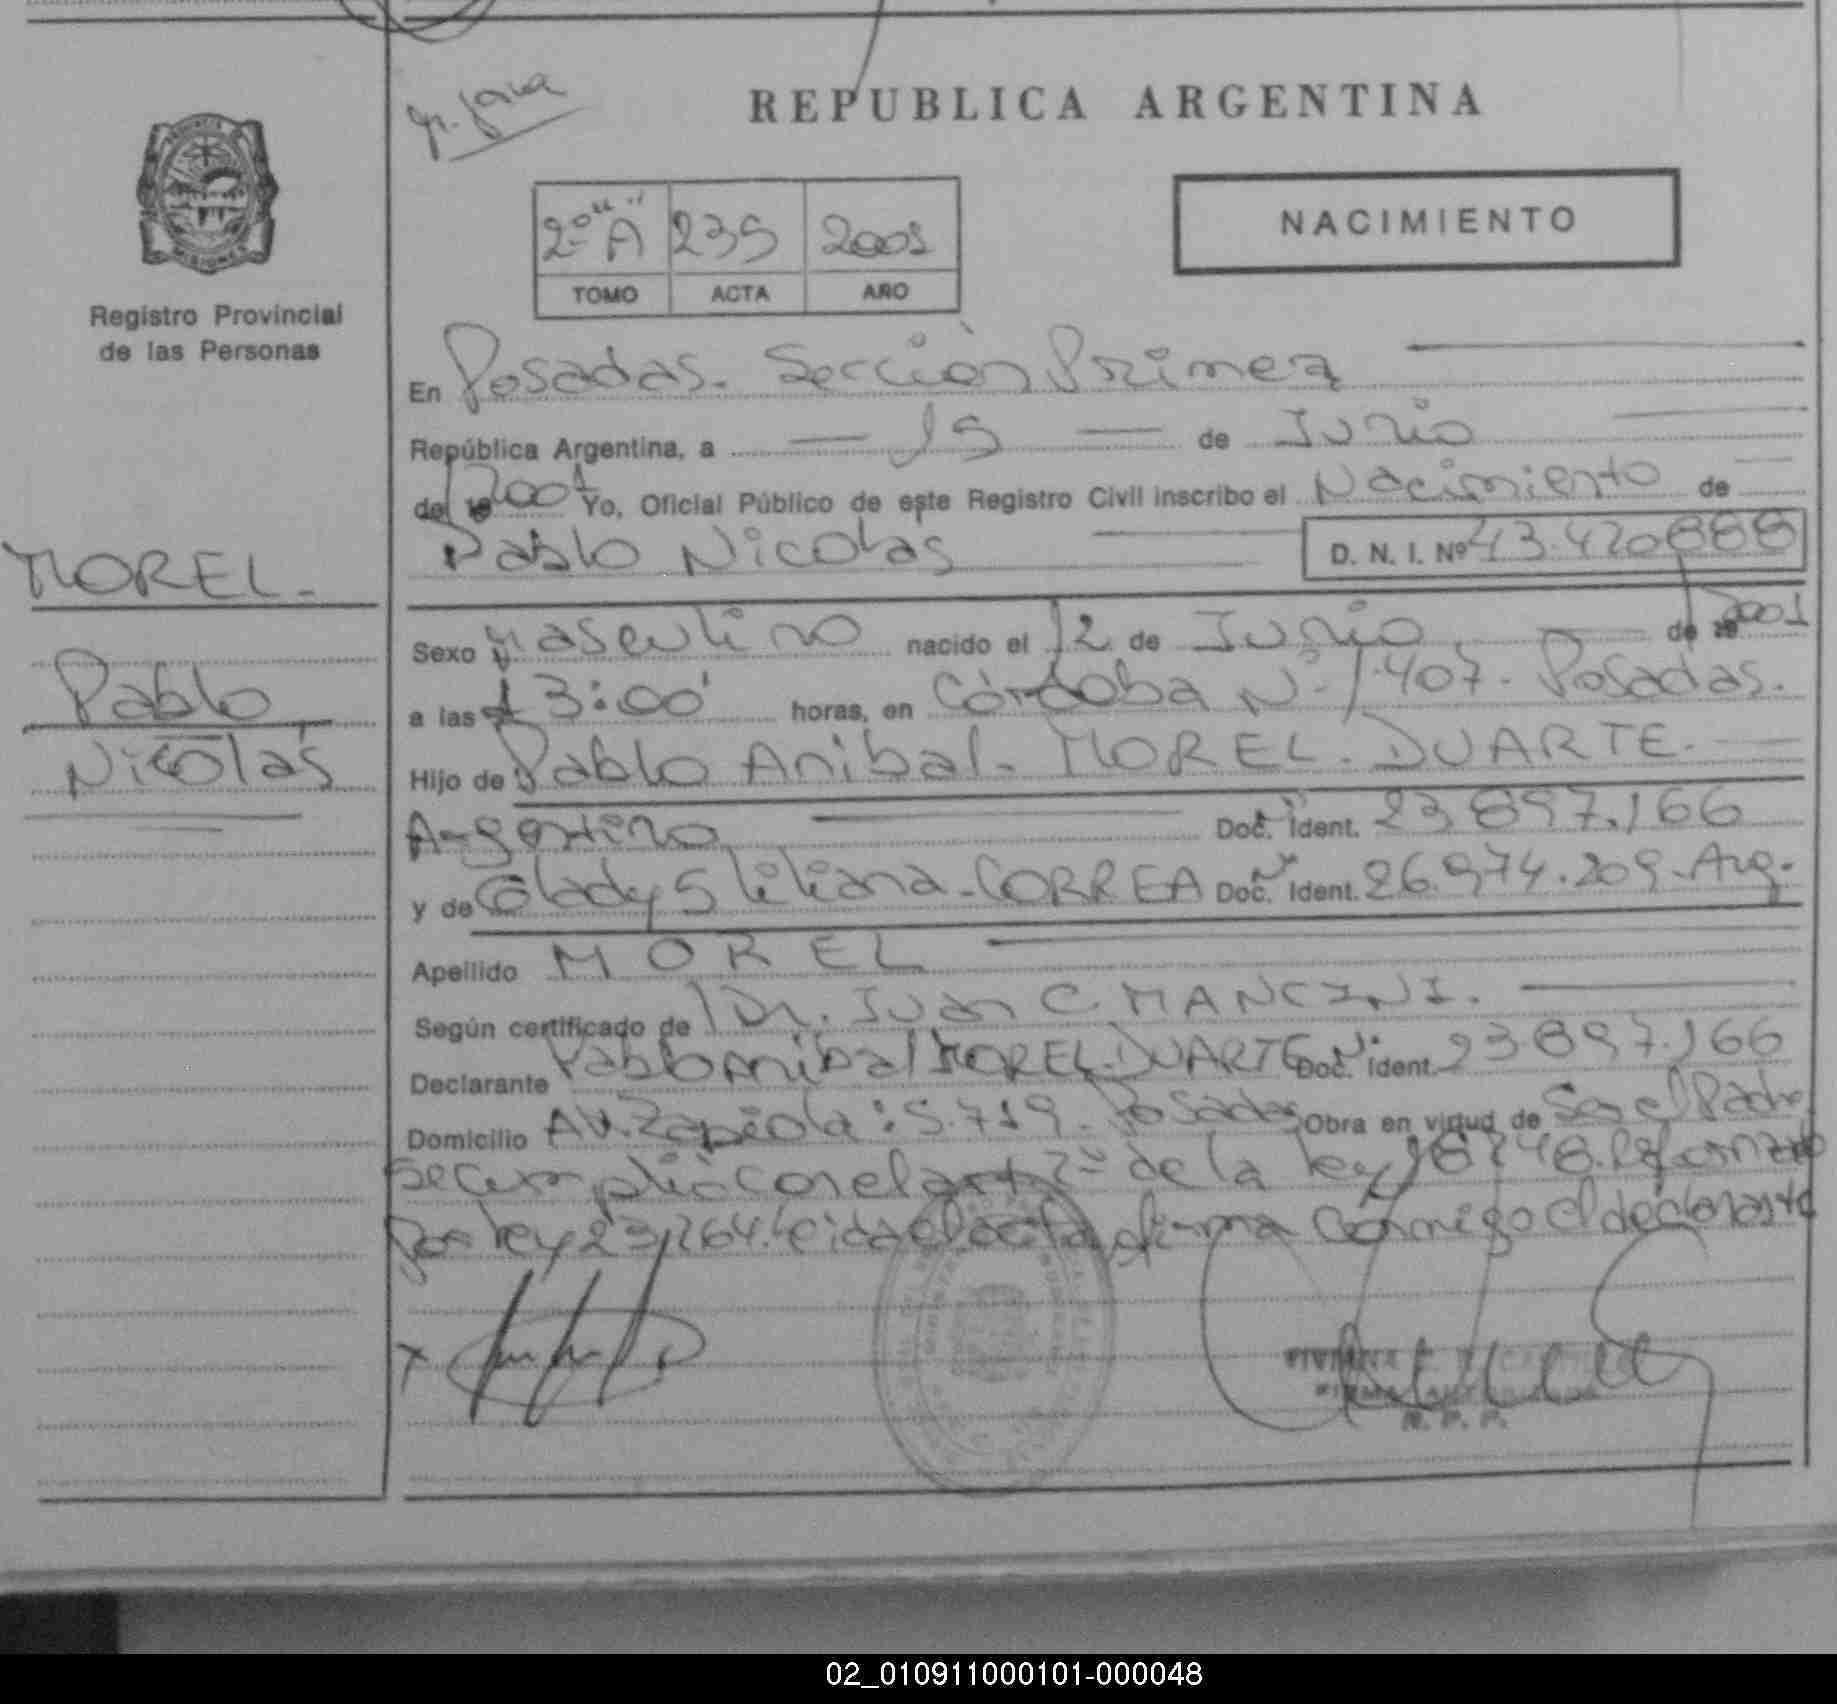 REPUBLICA ARGENTINA
NACIMIENTO
2º "A" 235 2001
TOMO ACTA AÑO
Registro Provincial
de las Personas
MISIONES
En Posadas. Sección Primera
República Argentina, a 15 de Junio
de 2001 Yo, Oficial Público de este Registro Civil inscribo el Nacimiento de
Pablo Nicolas D. N. I. Nº 43.420888
MOREL.
Pablo
Nicolás
Sexo Masculino nacido el 12 de Junio de 2001
a las 13:00' horas, en Córdoba Nº 1.407. Posadas.
Hijo de Pablo Anibal. MOREL. DUARTE.
Argentino Doc. Ident. 23.897.166
y de Gladys Liliana. CORREA Doc. Ident. 26.974.209. Arg.
Apellido MOREL
Según certificado de Dr. Juan C MANCINI.
Declarante Pablo Anibal MOREL. DUARTE Doc. Ident. 23.897.166
Domicilio Av. Zapiola: 5.719. Posadas Obra en virtud de Ser el Padre
Se cumplió con el art 2º de la ley 18248. Reformado
por ley 23,264. Leída el acta, firma conmigo el declarante
VIVIANA
FIRMA AUTORIZADA
R. P. P.
02_010911000101-000048